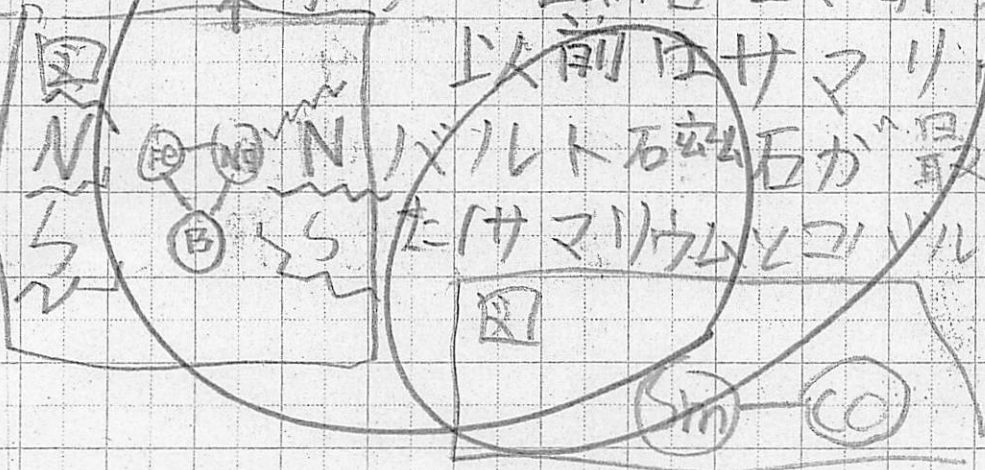 図
N
S
Fe Nd
B
N
S
以前はサマリ
バルト石磁石が最
た(サマリウムとコバル
図
Sm CO